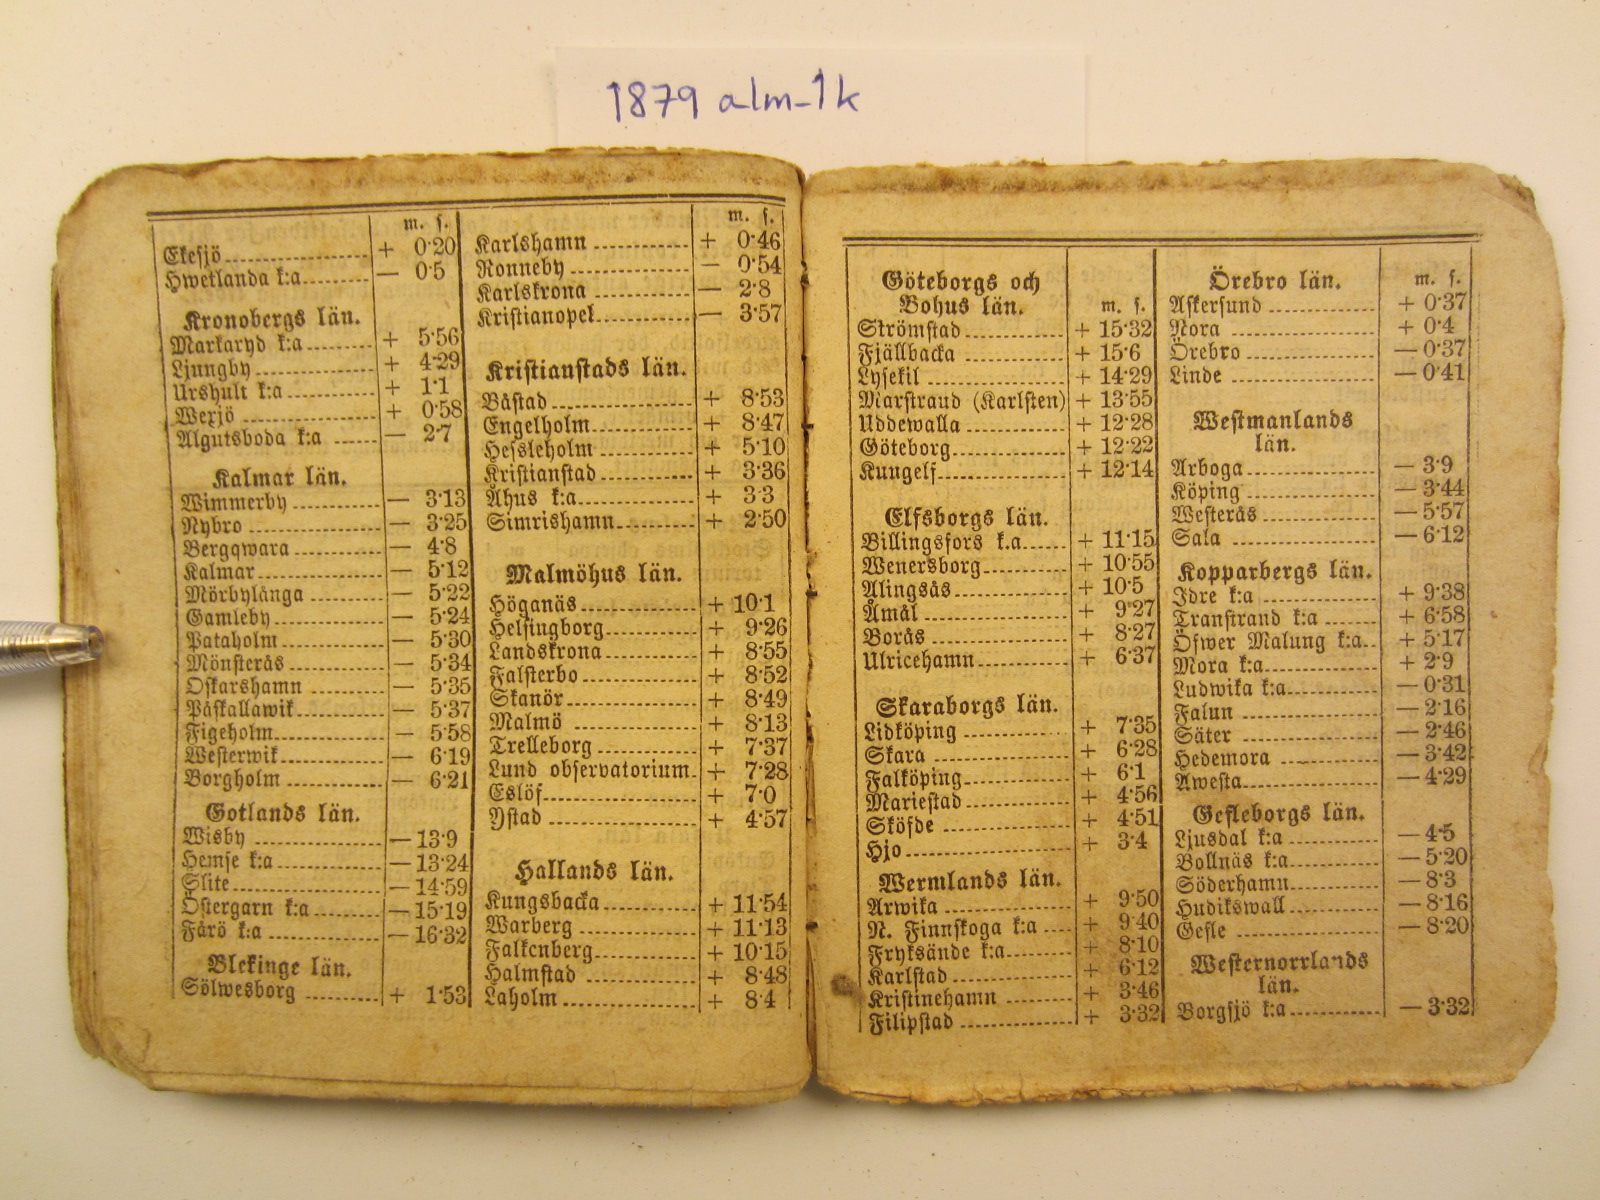 1879 alm-1k
m. s.
Ekesjö + 0·20
Hwetlanda k:a — 0·5
Kronobergs län.
Markaryd k:a + 5·56
Ljungby + 4·29
Urshult k:a + 1·1
Wexjö + 0·58
Algutsboda k:a — 2·7
Kalmar län.
Wimmerby — 3·13
Nybro — 3·25
Bergqwara — 4·8
Kalmar — 5·12
Mörbylånga — 5·22
Gamleby — 5·24
Pataholm — 5·30
Mönsterås — 5·34
Oskarshamn — 5·35
Påskallawik — 5·37
Figeholm — 5·58
Westerwik — 6·19
Borgholm — 6·21
Gotlands län.
Wisby — 13·9
Hemse k:a — 13·24
Slite — 14·59
Östergarn k:a — 15·19
Fårö k:a — 16·32
Blekinge län.
Sölwesborg + 1·53
m. s.
Karlshamn + 0·46
Ronneby — 0·54
Karlskrona — 2·8
Kristianopel — 3·57
Kristianstads län.
Båstad + 8·53
Engelholm + 8·47
Hessleholm + 5·10
Kristianstad + 3·36
Åhus k:a + 3·3
Simrishamn + 2·50
Malmöhus län.
Höganäs + 10·1
Helsingborg + 9·26
Landskrona + 8·55
Falsterbo + 8·52
Skanör + 8·49
Malmö + 8·13
Trelleborg + 7·37
Lund observatorium + 7·28
Eslöf + 7·0
Ystad + 4·57
Hallands län.
Kungsbacka + 11·54
Warberg + 11·13
Falkenberg + 10·15
Halmstad + 8·48
Laholm + 8·4
Göteborgs och
Bohus län. m. s.
Strömstad + 15·32
Fjällbacka + 15·6
Lysekil + 14·29
Marstrand (Karlsten) + 13·55
Uddewalla + 12·28
Göteborg + 12·22
Kungelf + 12·14
Elfsborgs län.
Billingsfors k.a + 11·15
Wenersborg + 10·55
Alingsås + 10·5
Åmål + 9·27
Borås + 8·27
Ulricehamn + 6·37
Skaraborgs län.
Lidköping + 7·35
Skara + 6·28
Falköping + 6·1
Mariestad + 4·56
Sköfde + 4·51
Hjo + 3·4
Wermlands län.
Arwika + 9·50
N. Finnskoga k:a + 9·40
Fryksände k:a + 8·10
Karlstad + 6·12
Kristinehamn + 3·46
Filipstad + 3·32
Örebro län. m. s.
Askersund + 0·37
Nora + 0·4
Örebro — 0·37
Linde — 0·41
Westmanlands
län.
Arboga — 3·9
Köping — 3·44
Westerås — 5·57
Sala — 6·12
Kopparbergs län.
Idre k:a + 9·38
Transtrand k:a + 6·58
Öfwer Malung k:a + 5·17
Mora k:a + 2·9
Ludwika k:a — 0·31
Falun — 2·16
Säter — 2·46
Hedemora — 3·42
Awesta — 4·29
Gefleborgs län.
Ljusdal k:a — 4·5
Bollnäs k:a — 5·20
Söderhamn — 8·3
Hudikswall — 8·16
Gefle — 8·20
Westernorrlands
län.
Borgsjö k:a — 3·32